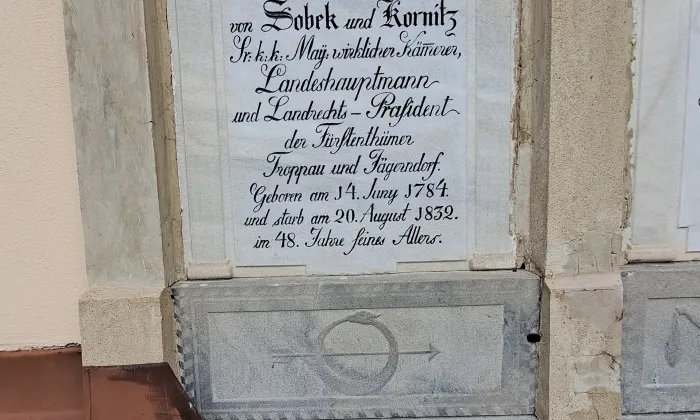 von Sobek und Kornitz
Sr: k: k: Maÿ: wirklicher Kämerer,
Landeshauptmann
und Landrechts – Präsident
der Fürstenthümer
Troppau und Jägerndorf.
Geboren am 14. Juny 1784.
und starb am 20. August 1832.
im 48. Jahre seines Alters.